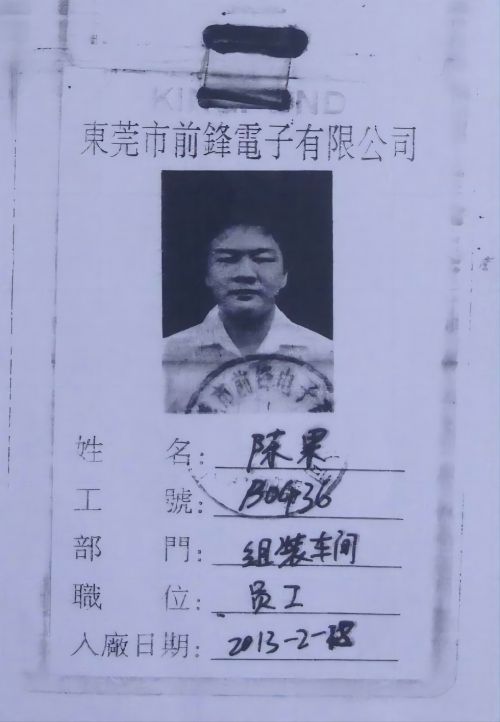 東莞市前鋒電子有限公司
市前锋电子
姓 名: 陈果
工 號: B0436
部 門: 组装车间
職 位: 员工
入廠日期: 2013-2-